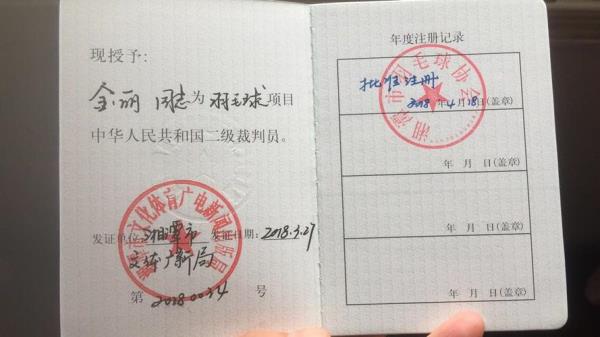 现授予:
金丽 同志为 羽毛球 项目
中华人民共和国二级裁判员。
发证单位: 湘潭市 发证日期: 2018.3.27
文体广新局
第 20180034 号
年度注册记录
批准注册
2018年4月18日(盖章)
年 月 日(盖章)
年 月 日(盖章)
年 月 日(盖章)
湘潭市羽毛球协会
湘潭市文化体育广电新闻出版局